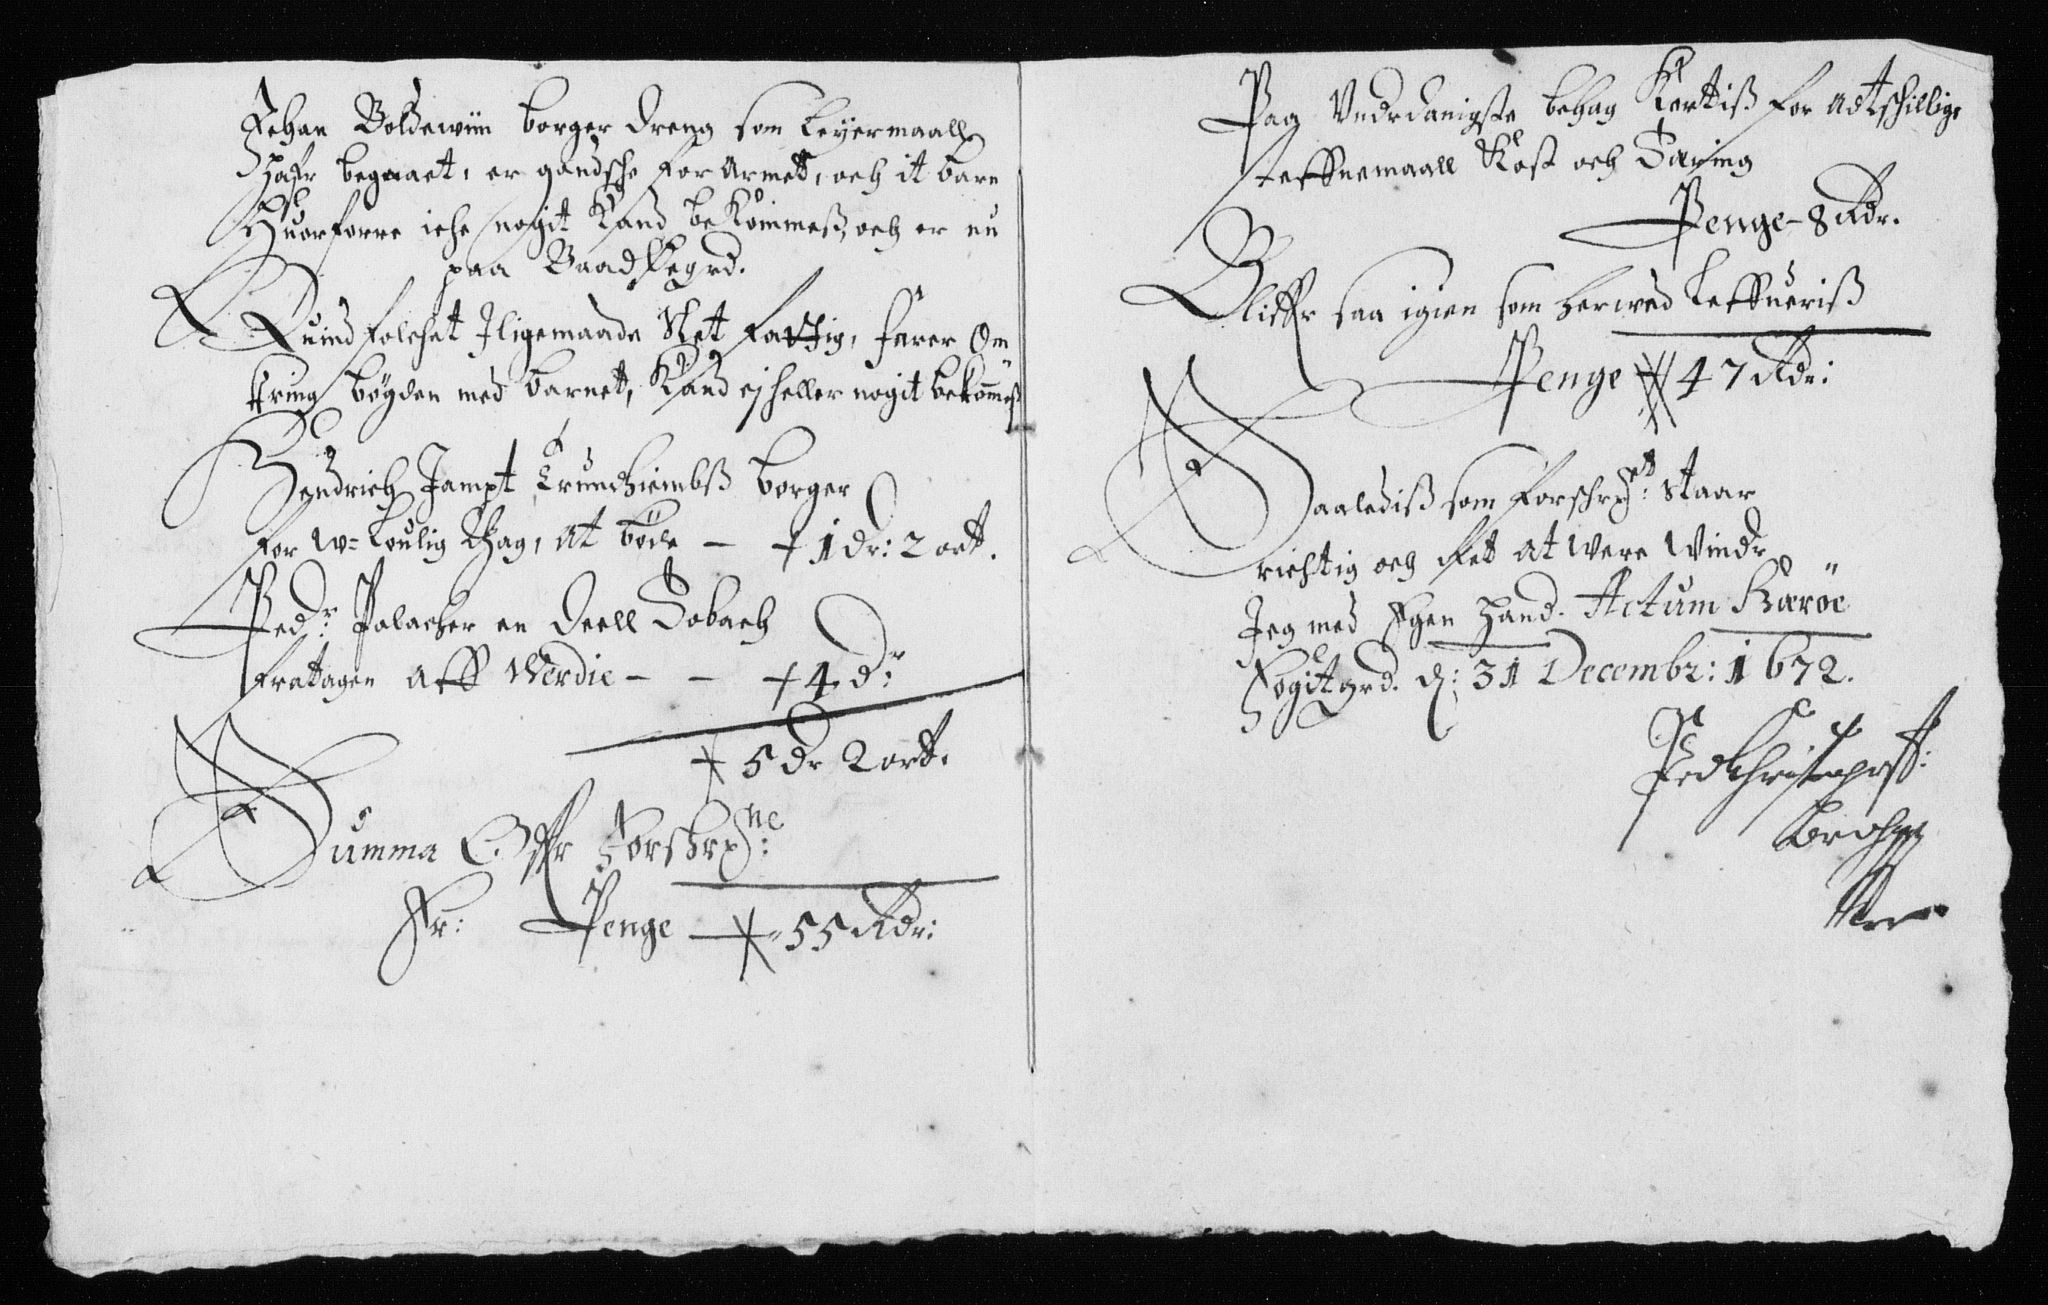 Johan Boldewiin borger dreng som leyermaall
Hafr begaaet, er gandsche for Armett, och it barn
Huorforre iche nogit Kand beKommeß, och er nu
paa Baadssegrd.
Quind folchet Jligemaade Slet fattig, farer Om
kring bögden med barnet, Kand ej heller nogit bekomeß
Hendrich Jampt Trundhiembß borger
for w=loulig Thag, at böde – + 1 dr: 2 ort.
Pedr Polacher en deell Tobach
frattagen Aff Werdie – – + 4 dr
+ 5 dr 2 ort.
Summa Offr forschrne:
Er: Penge – + 55 Rdr:
Paa Vndrdanigste behag Kortiß for Adtschillige
steffnemaall Kost och Tæring
Penge – 8 Rdr.
Bliffr saa igien som herwed leffueriß
Penge 47 Rdr:
Saalediß som forschret: staar
richtig och Ret at were Windr
Jeg med Egen Hand. Actum Kæröe
fogitgrd. d: 31 Decembr: 1672.
Ped Christophrß: